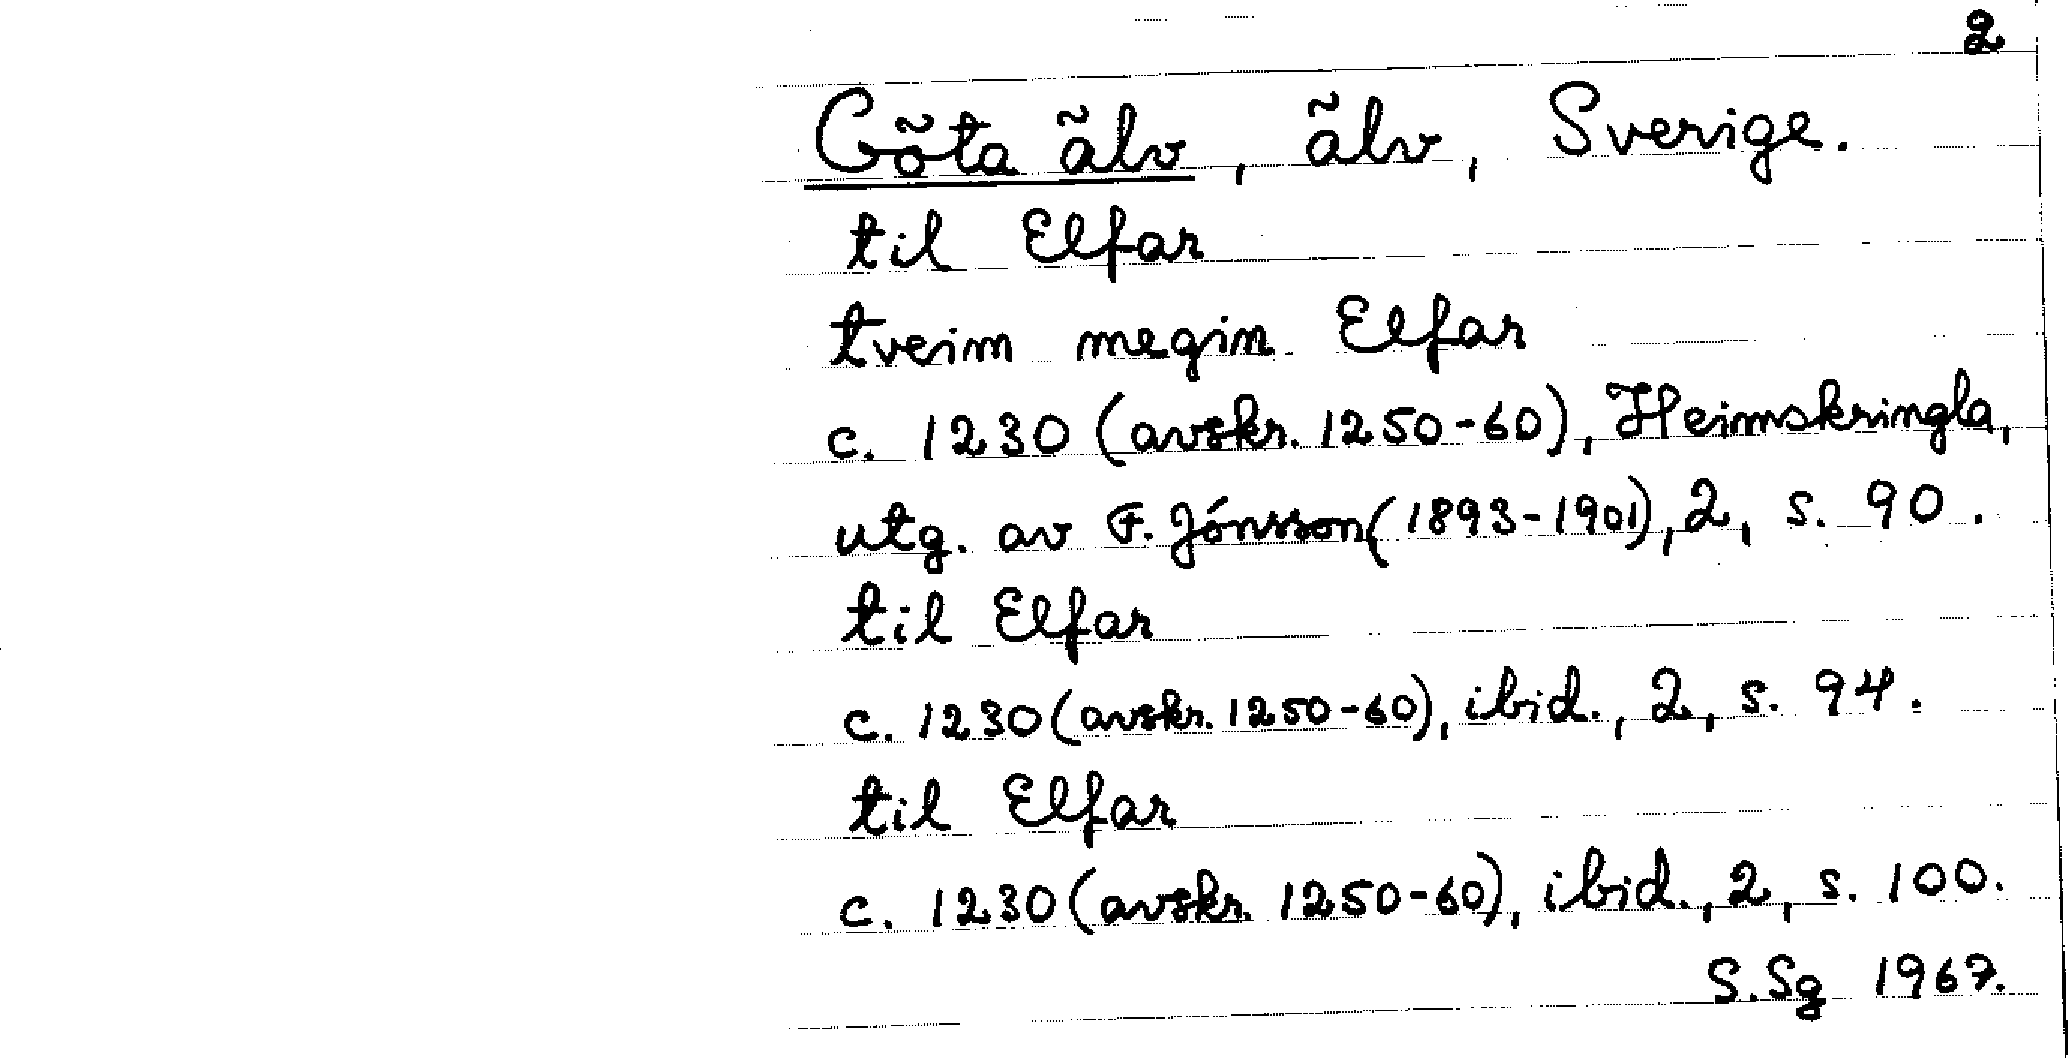 2
Göta älv, älv, Sverige.
til Elfar
tveim megin Elfar
c. 1230 (avskr. 1250-60), Heimskringla,
utg. av F. Jónsson (1893-1901), 2, s. 90.
til Elfar
c. 1230 (avskr. 1250-60), ibid., 2, s. 94.
til Elfar
c. 1230 (avskr. 1250-60), ibid., 2, s. 100.
S.Sg 1967.